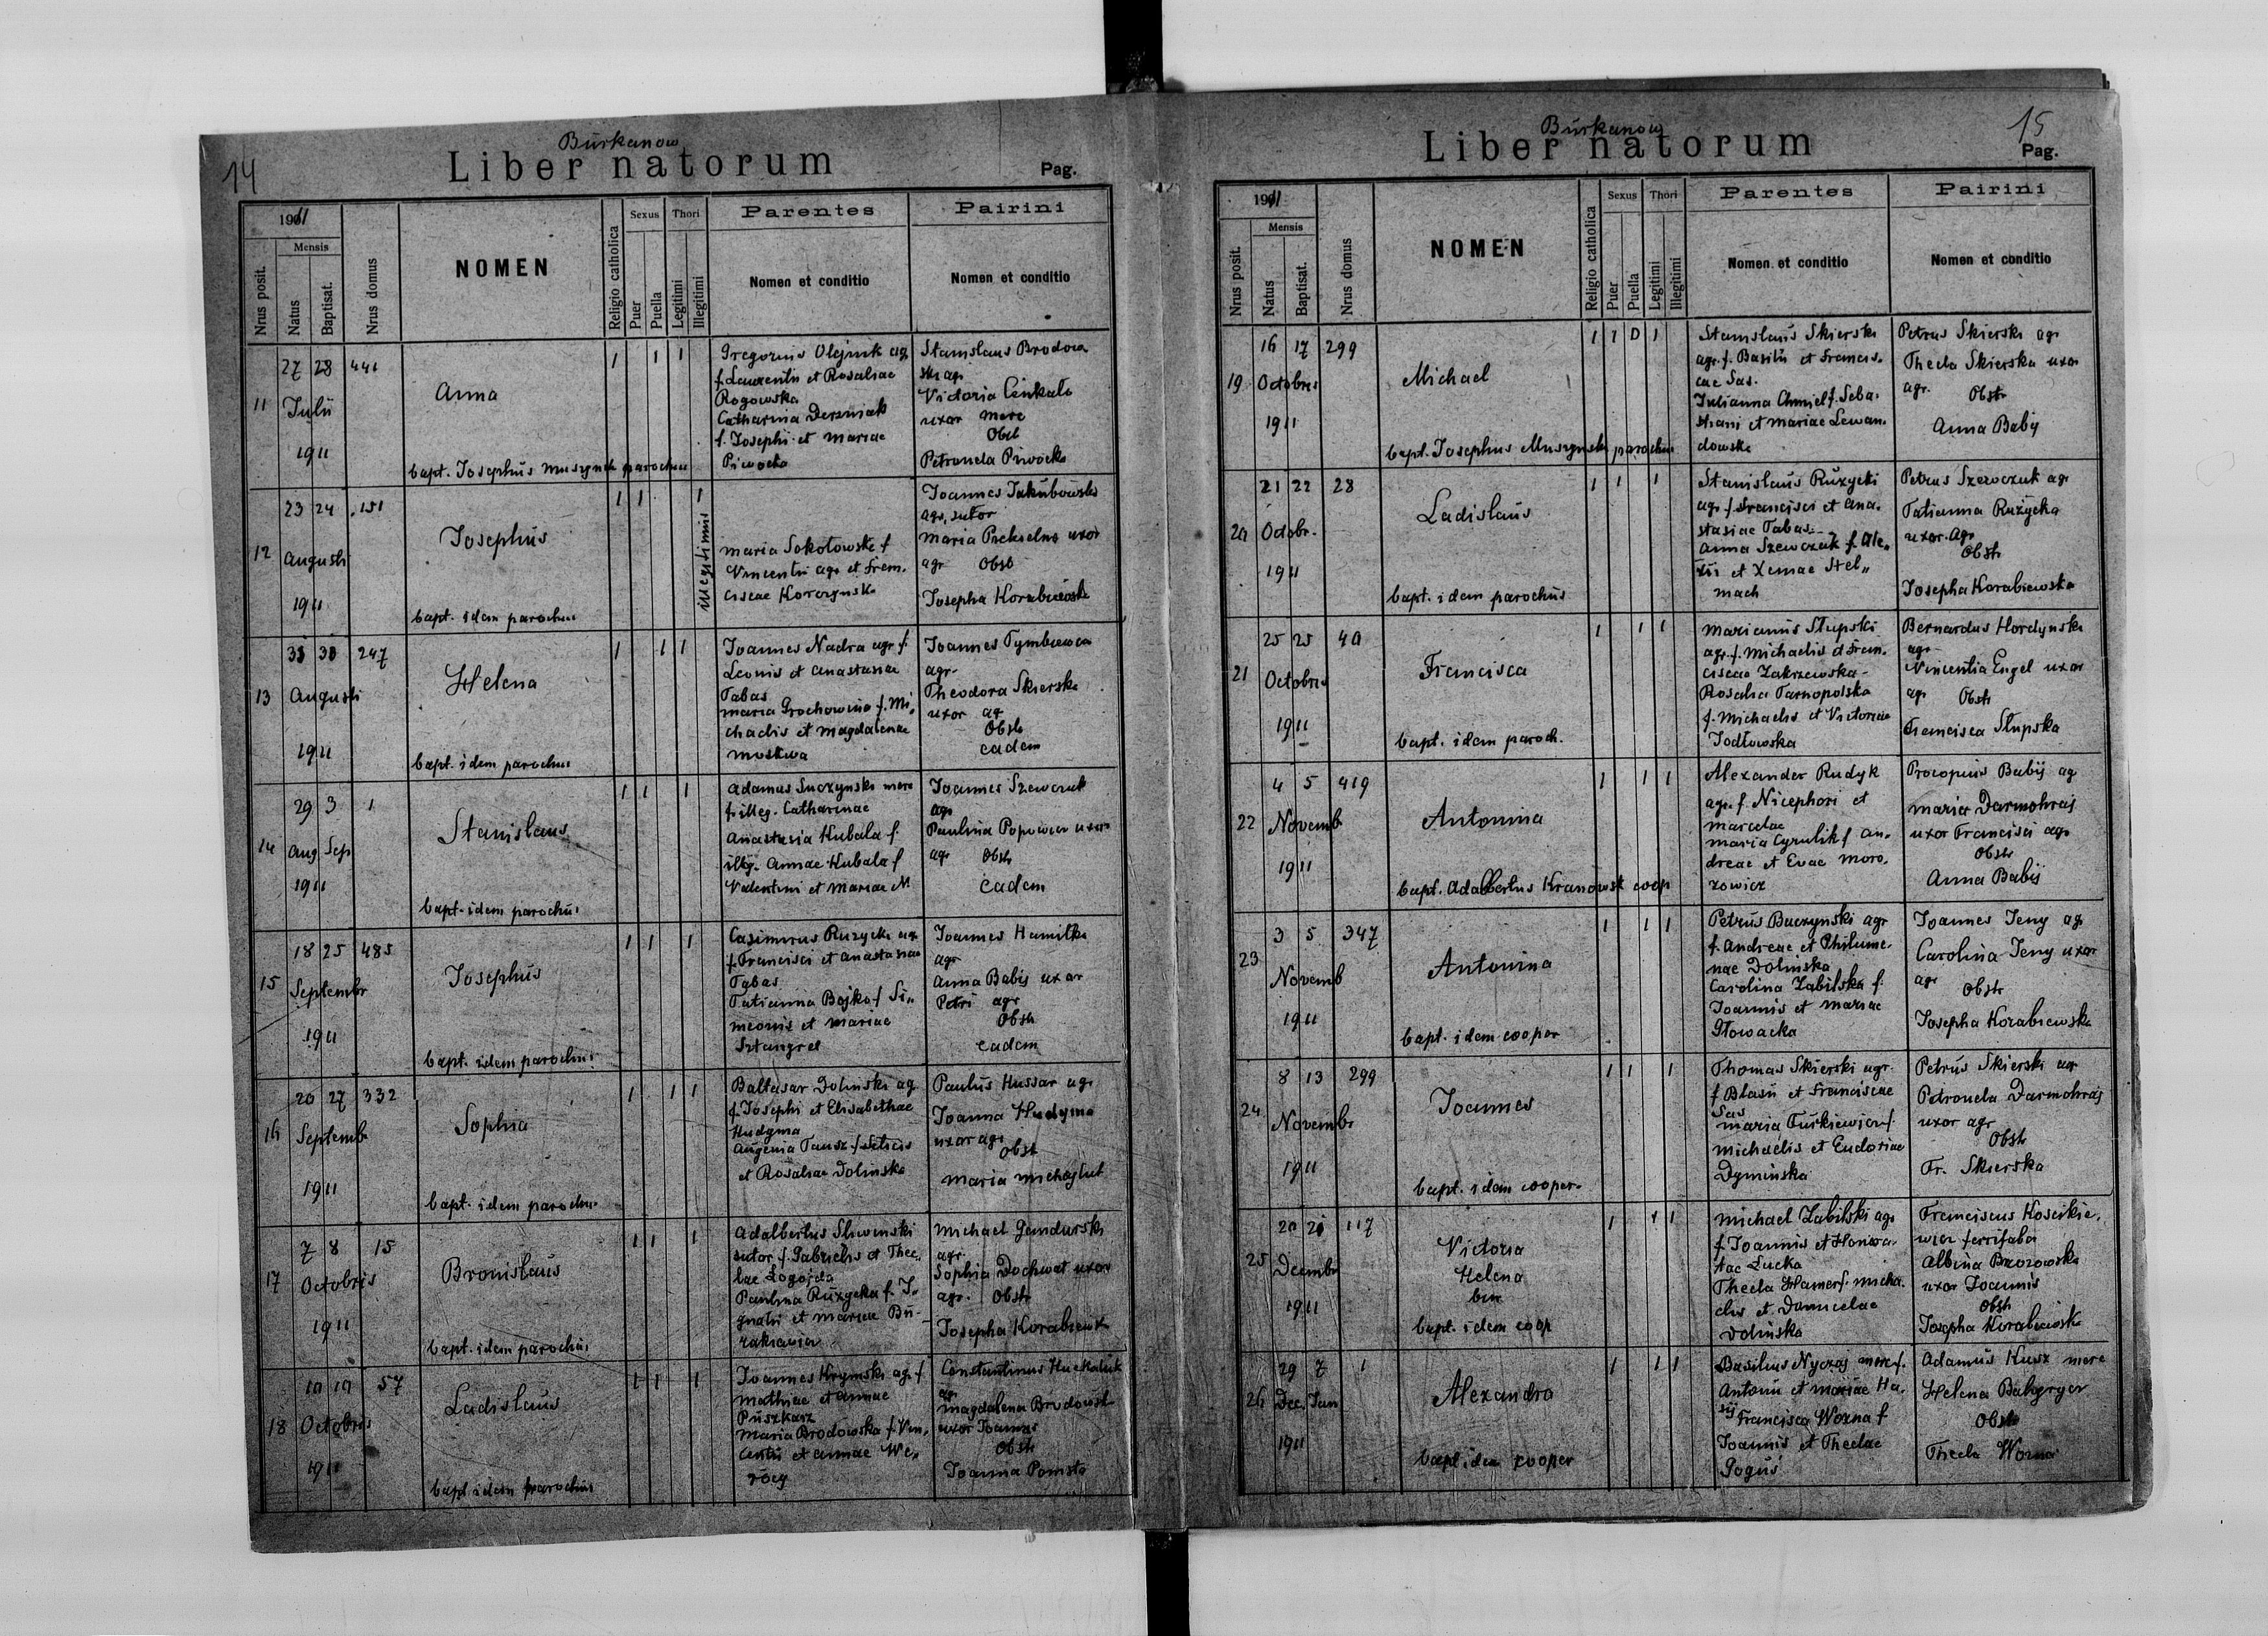 14
Burkanow
Liber natorum
Pag.
1911
Mensis
Nrus posit.
Natus
Baptisat.
Nrus domus
NOMEN
Religio catholica
Sexus
Puer
Puella
Thori
Legitimi
Illegitimi
Parentes
Nomen et conditio
Pairini
Nomen et conditio
11
27 28 441
Julii
1911
Anna
bapt. Josephus Muszynski parochus
1 1 1
Gregorius Olejnik agr.
f. Laurentii et Rosaliae
Rogowska
Catharina Derzniak
f. Josephi et Mariae
Piwocka
Stanislaus Brodow
ski agr
Victoria Cenkalo
uxor merc
Obst
Petronela Piwocka
12
23 24 151
Augusti
1911
Josephus
bapt. idem parochus
1 1 1
illegitimus
Maria Sokołowska f.
Vincentii agr et Fran.
ciscae Korczynska
Joannes Jakubowski
agr, sutor
Maria uxor
agr Obst
Josepha Korabiewska
13
30 247
Augusti
1911
Helena
bapt. idem parochus
1 1 1
Joannes Nadra agr f.
Leonis et Anastasiae
Tabas
Maria Grochowina f. Mi,
chaelis et Magdalenae
Moskwa
Joannes Tymkiewicz
agr.
Theodora Skierska
uxor agr
Obst
eadem
14
29 3 1
Aug. Sep
1911
Stanislaus
bapt. idem parochus
1 1 1
Adamus Suczynski merc
f. illeg. Catharinae
Anastasia Kubala f.
illeg. Annae Kubala f
Valentini et Mariae N
Joannes Szewczuk
agr
Paulina Popowicz uxor
agr Obst
Eadem
15
18 25 485
Septembr
1911
Josephus
bapt. idem parochus
1 1 1
Casimirus Ruzycki agr
f. Francisci et Anastasiae
Tabas
Tatianna Bojko f. Si„
meonis et Mariae
Sztangret
Joannes Hamilka
agr
Anna Babij uxor
Petri agr
Obst
eadem
16
20 27 332
Septemb
1911
Sophia
bapt. idem parochus
1 1 1
Baltasar Dolinski ag
f. Josephi et Elisabethae
Hudyma
Augenia Tausz f. Felicis
et Rosaliae Dolinska
Paulus Hussar agr
Joanna Hudyma
uxor agr
Obst
Maria
17
7 8 15
Octobris
1911
Bronislaus
bapt. idem parochus
1 1 1
Adalbertus Sliwinski
sutor f. Gabrielis et Thec„
lae Łogojda
Paulina Ruzycka f. I„
gnatii et Mariae Bu-
rakiewicz
Michael Gandurski
agr.
Sophia Dochwat uxor
agr. Obst
Josepha Korabiewsk
18
10 10 57
Octobris
1911
Ladislaus
bapt. idem parochus
1 1 1
Joannes Krymski agr f
Mathiae et Annae
Puszkarz
Maria Brodowska f. Vin,
centii et Annae We,
Constantinus Huckaluk
agr
Magdalena Brodowsk
uxor Joannis
Obst
Joanna
15
Burkanow
Liber natorum
Pag.
1911
Mensis
Nrus posit.
Natus
Baptisat.
Nrus domus
NOMEN
Religio catholica
Sexus
Puer
Puella
Thori
Legitimi
Illegitimi
Parentes
Nomen et conditio
Pairini
Nomen et conditio
19
16 17 299
Octobris
1911
Michael
bapt. Josephus Muszynski parochus
1 1 0 1
Stanislaus Skierski
agr. f. Basilii et Francis.
cae Sas.
Julianna Chmiel f. Seba.
stiani et Mariae Lewan.
dowska
Petrus Skierski agr
Thecla Skierska uxor
agr. Obst
Anna Babij
20
21 22 28
Octobr.
1911
Ladislaus
bapt. idem parochus
1 1 1
Stanislaus Ruzycki
agr f. Francisci et Ana.
stasiae Tabas.
Anna Szewczuk f. Ale„
xii et Xeniae Stel„
mach
Petrus Szewczuk agr
Tatianna Ruzycka
uxor. Agr
Obst
Josepha Korabiewska
21
25 25 40
Octobris
1911
Francisca
bapt. idem paroch.
1 1 1
Marianus Słupski
agr. f. Michaelis et Fran.
ciscae Zakrzewska-
Rosalia Tarnopolska
f. Michaelis et Victoriae
Jodłowska
Bernardus Hordynski
agr
Vincentia Engel uxor
agr Obst
Francisca Słupska
22
4 5 419
Novemb
1911
Antonina
bapt. Adalbertus Kranowsk coop
1 1 1
Alexander Rudyk
agr. f. Nicephori et
Marcelae
Maria Cyrulik f. An.
dreae et Evae Moro.
zowicz
Procopius Babij ag
Maria Darmohraj
uxor Francisci agr
Obst
Anna Babij
23
3 5 347
Novemb
1911
Antonina
bapt. idem cooper
1 1 1
Petrus Buczynski agr
f. Andreae et Philume.
nae Dolinska
Carolina Zabilska f.
Joannis et Mariae
Głowacka
Joannes Jeny ag
Carolina Jeny uxor
agr Obst
Josepha Korabiewska
24
8 13 299
Novembr
1911
Joannes
bapt. idem cooper.
1 1 1
Thomas Skierski agr.
f Blasii et Franciscae
Sas
Maria Turkiewicz f.
Michaelis et Eudoxiae
Dyminska
Petrus Skierski agr
Petronela Darmohraj
uxor agr
Obst
Fr. Skierska
25
20 21 117
Decembr
1911
Victoria
Helena
bin
bapt. idem coop
1 1 1
Michael Zabilski agr
f. Joannis et Honora.
tae Lucka
Thecla Hamer f. Micha.
elis et Danielae
Dolinska
Franciscus Koscikie.
wicz ferrifaber
Albina Brzozowska
uxor Joannis
Obst
Josepha Korabiewska
26
29 7 1
Dec. Jan
1911
Alexandra
bapt. idem cooper
1 1 1
Basilius Nyczaj merc f.
Antonii et Mariae Ha.
sij Francisca Wozna f.
Joannis et Theclae
Gogus
Adamus Kusz merc
Helena
Obst
Thecla Wozna